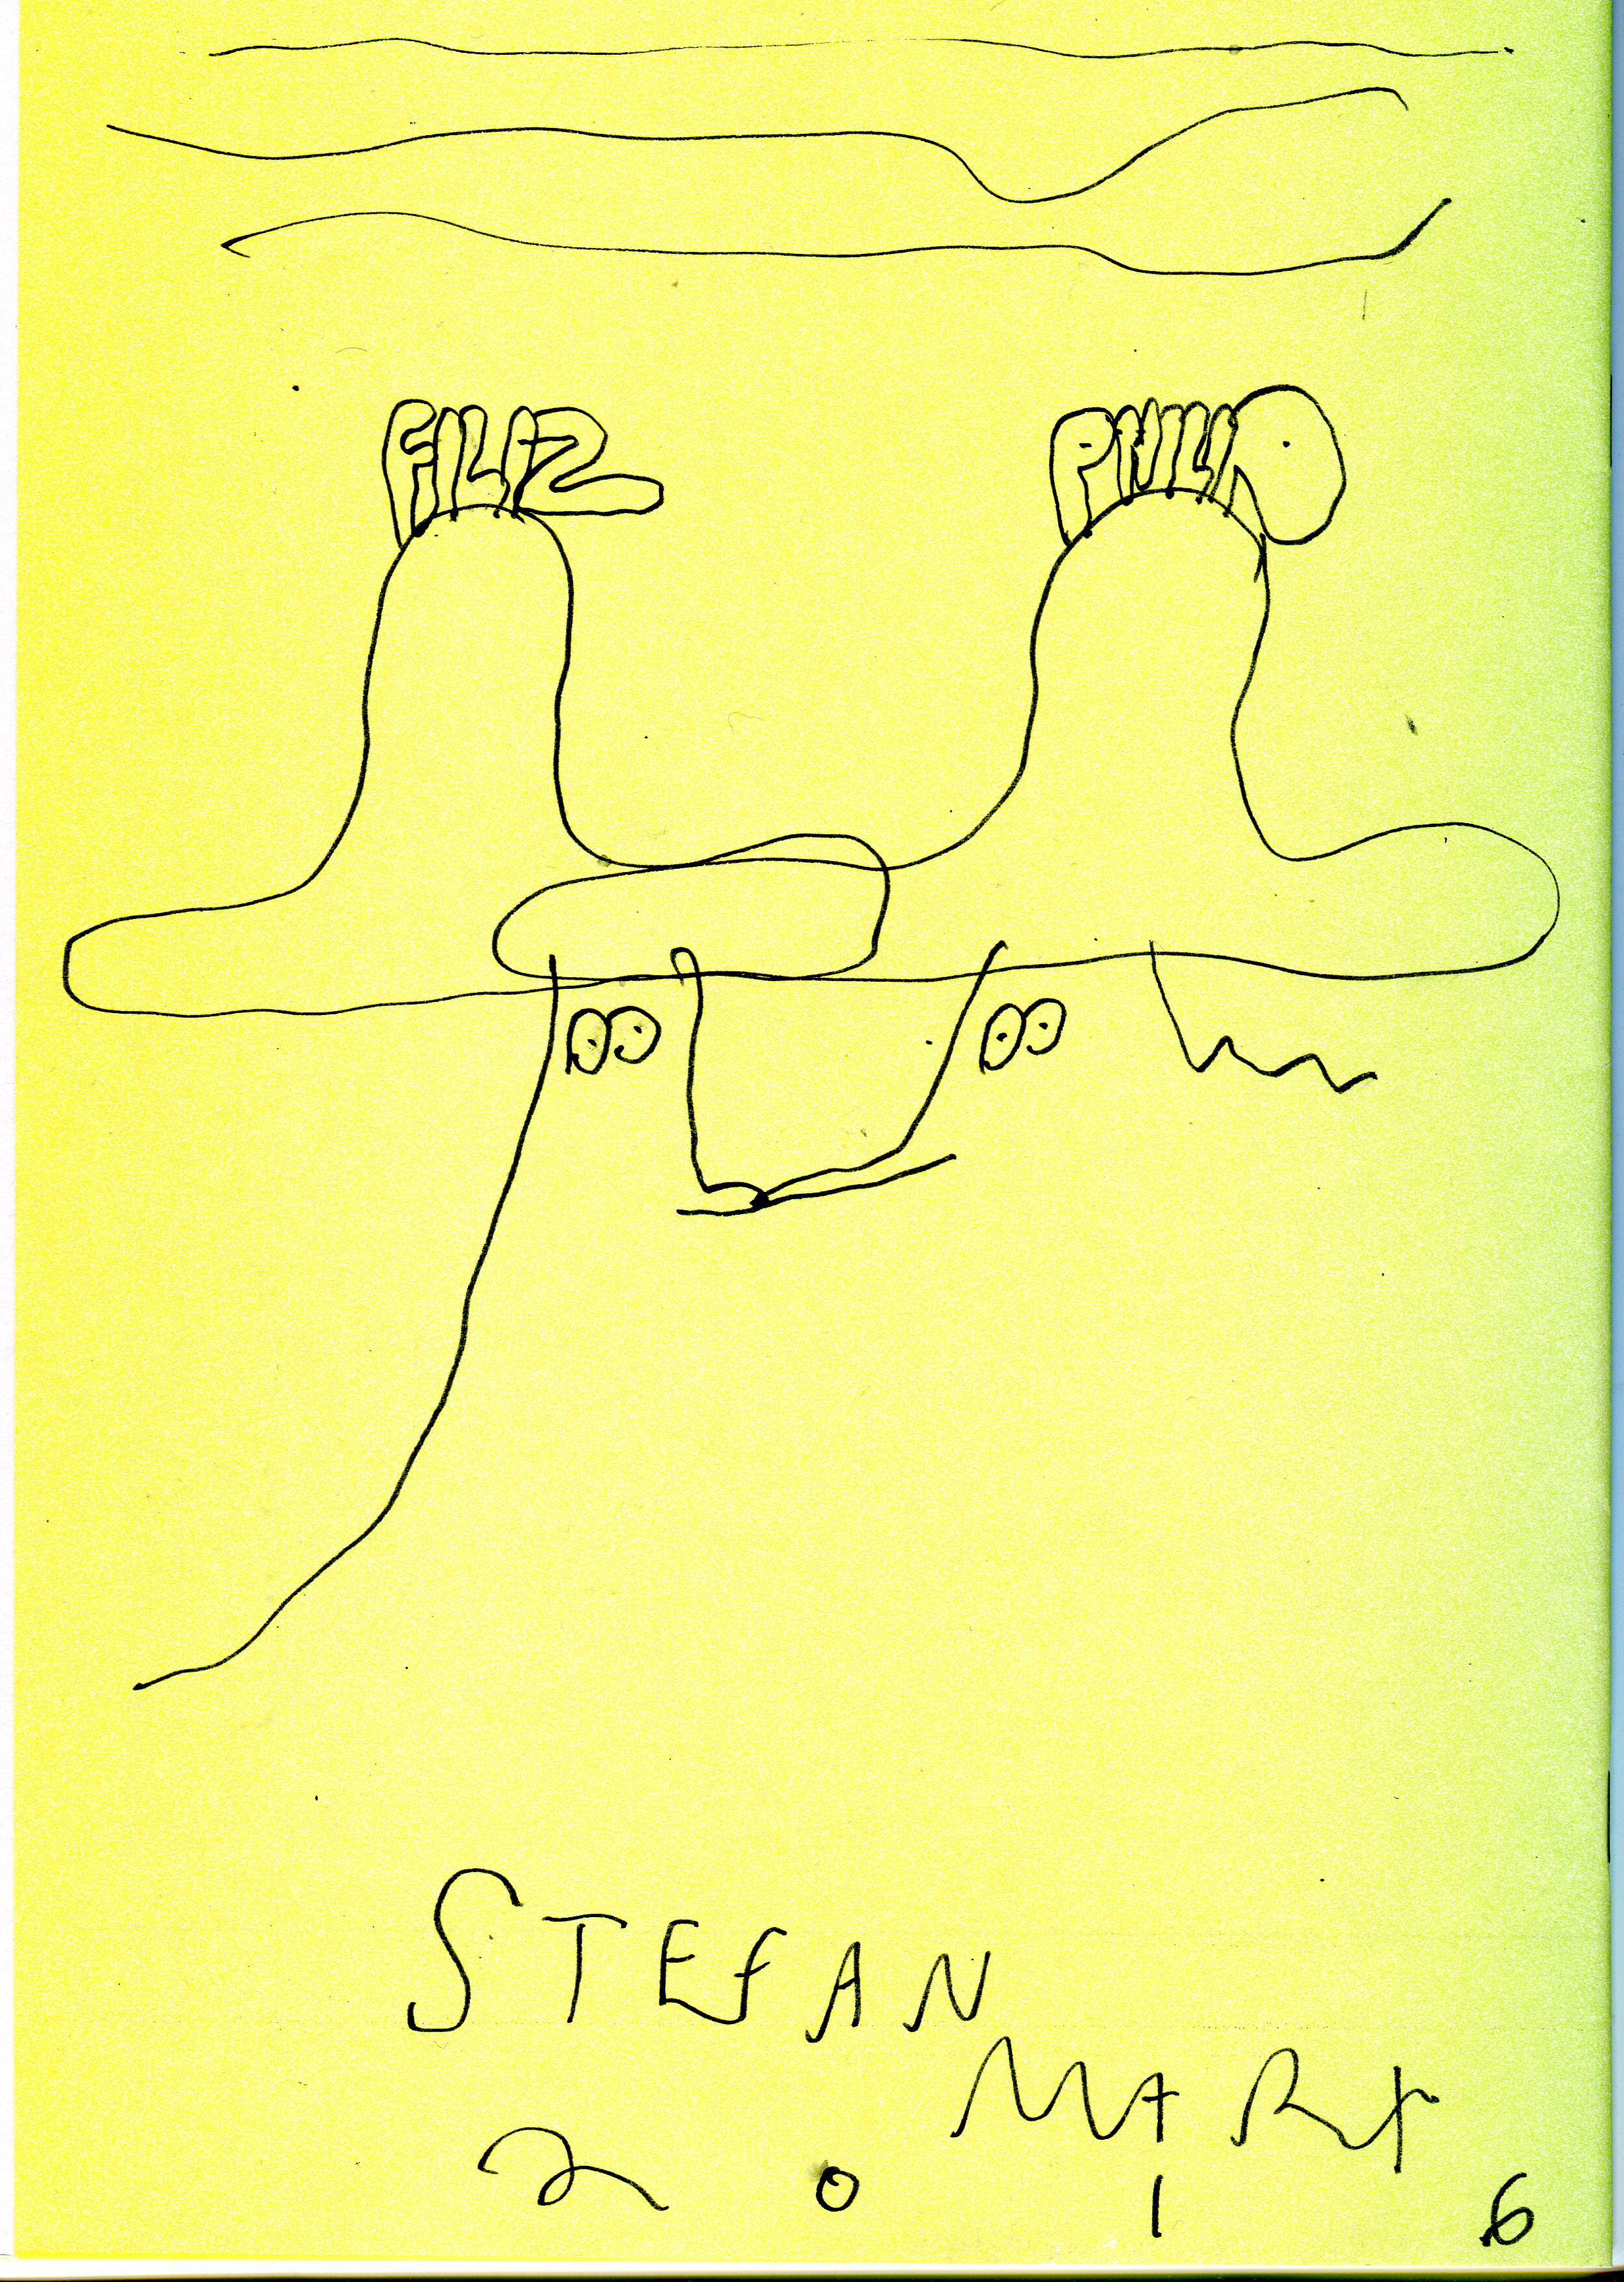 FILIZ PHILIP
STEFAN
MARX
2016